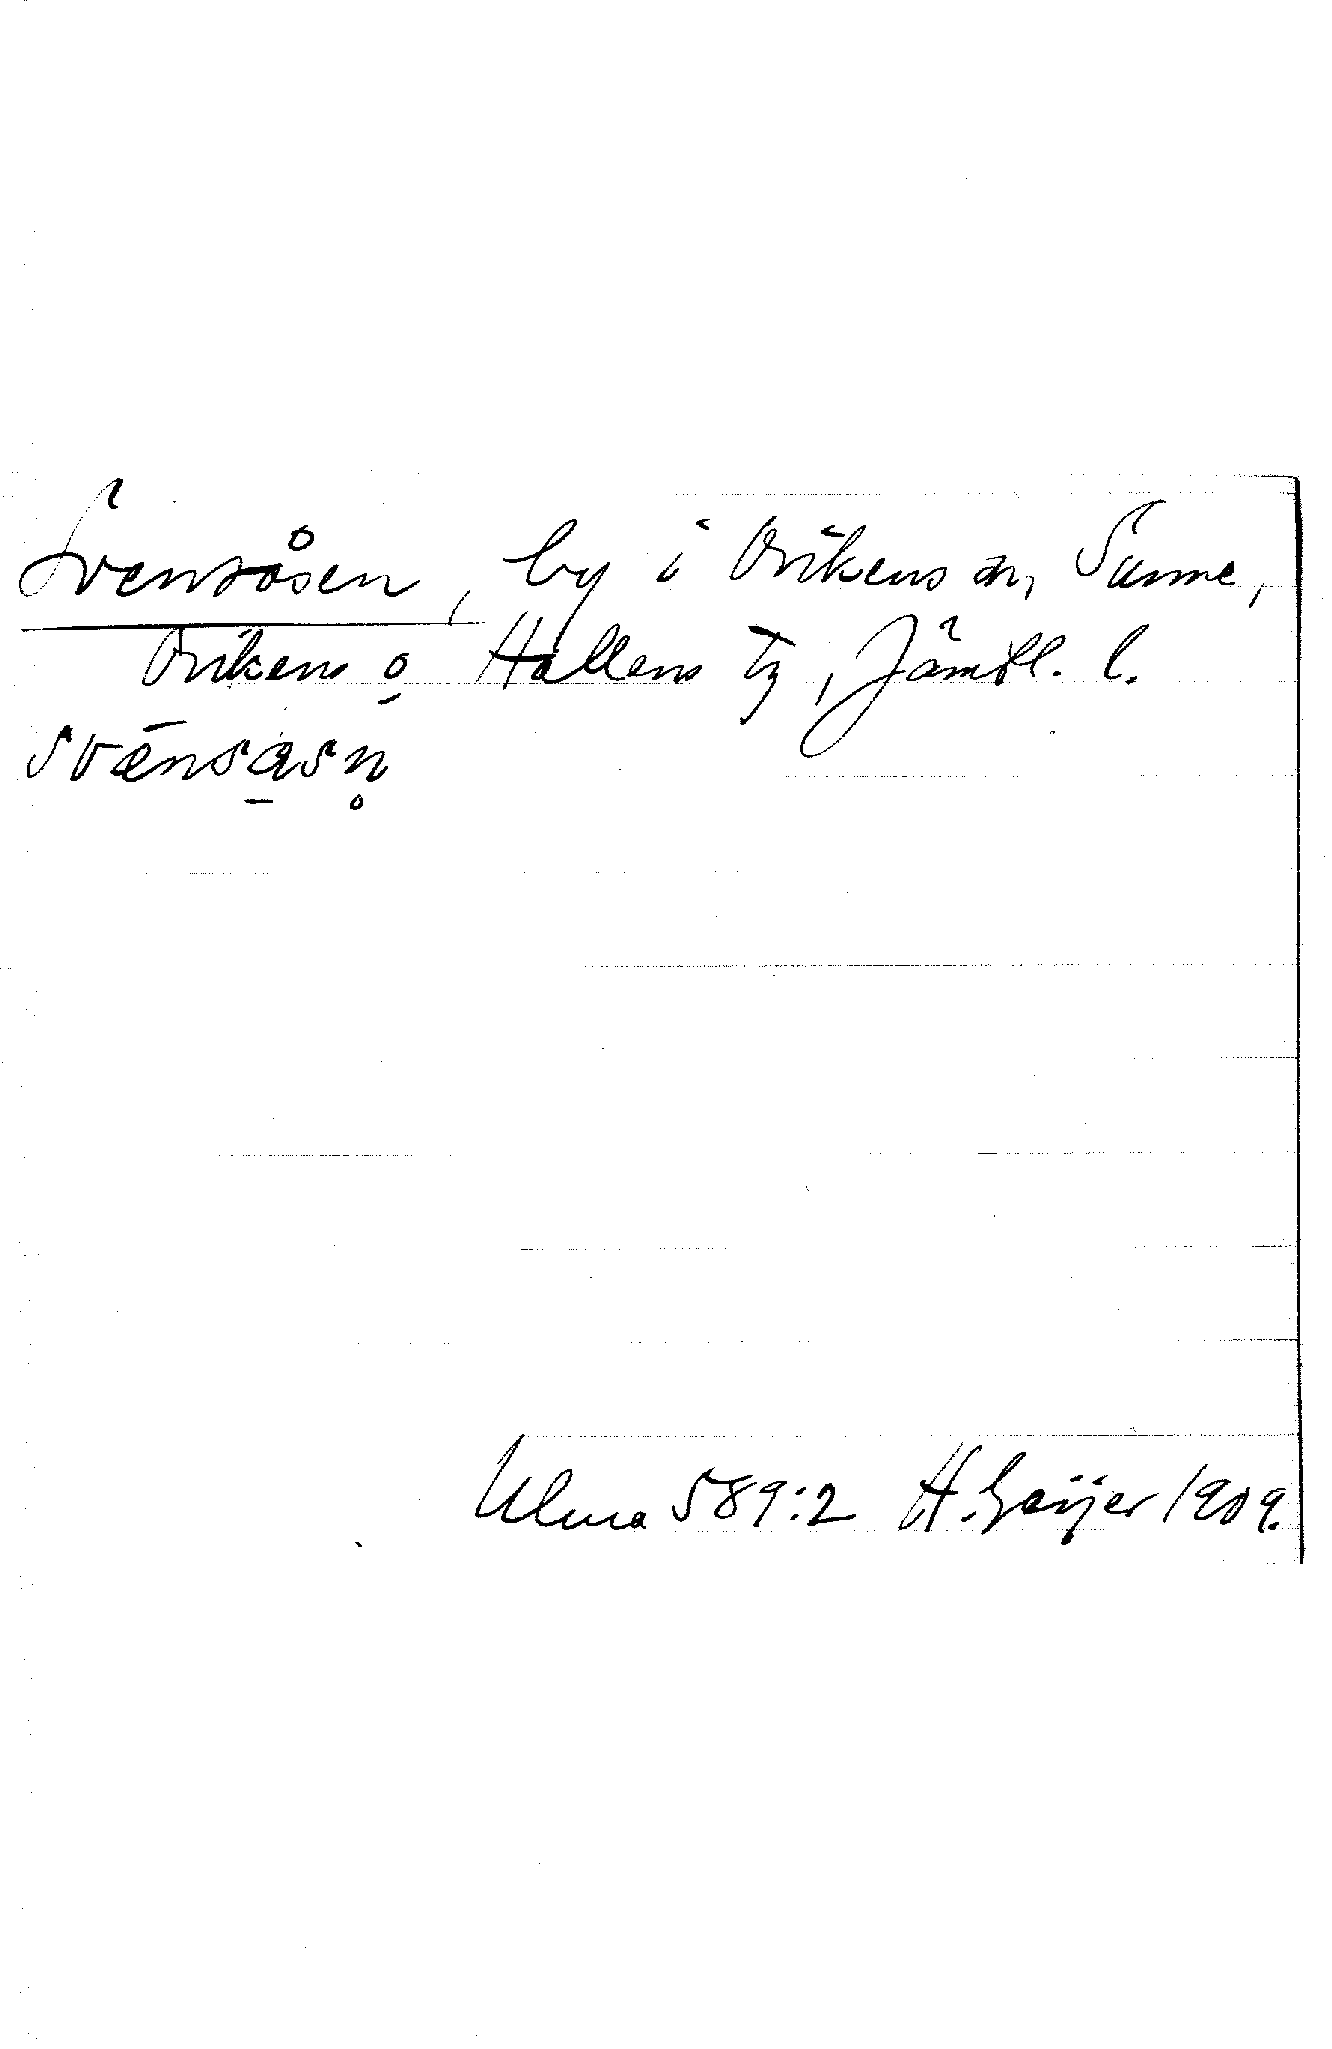 Svensåsen, by i Ovikens sn, Sunne,
Oviken o Hallens tg, Jämtl. l.
svēnsa̱sn̥
Ulma 589:2 H. Geijer 1909.